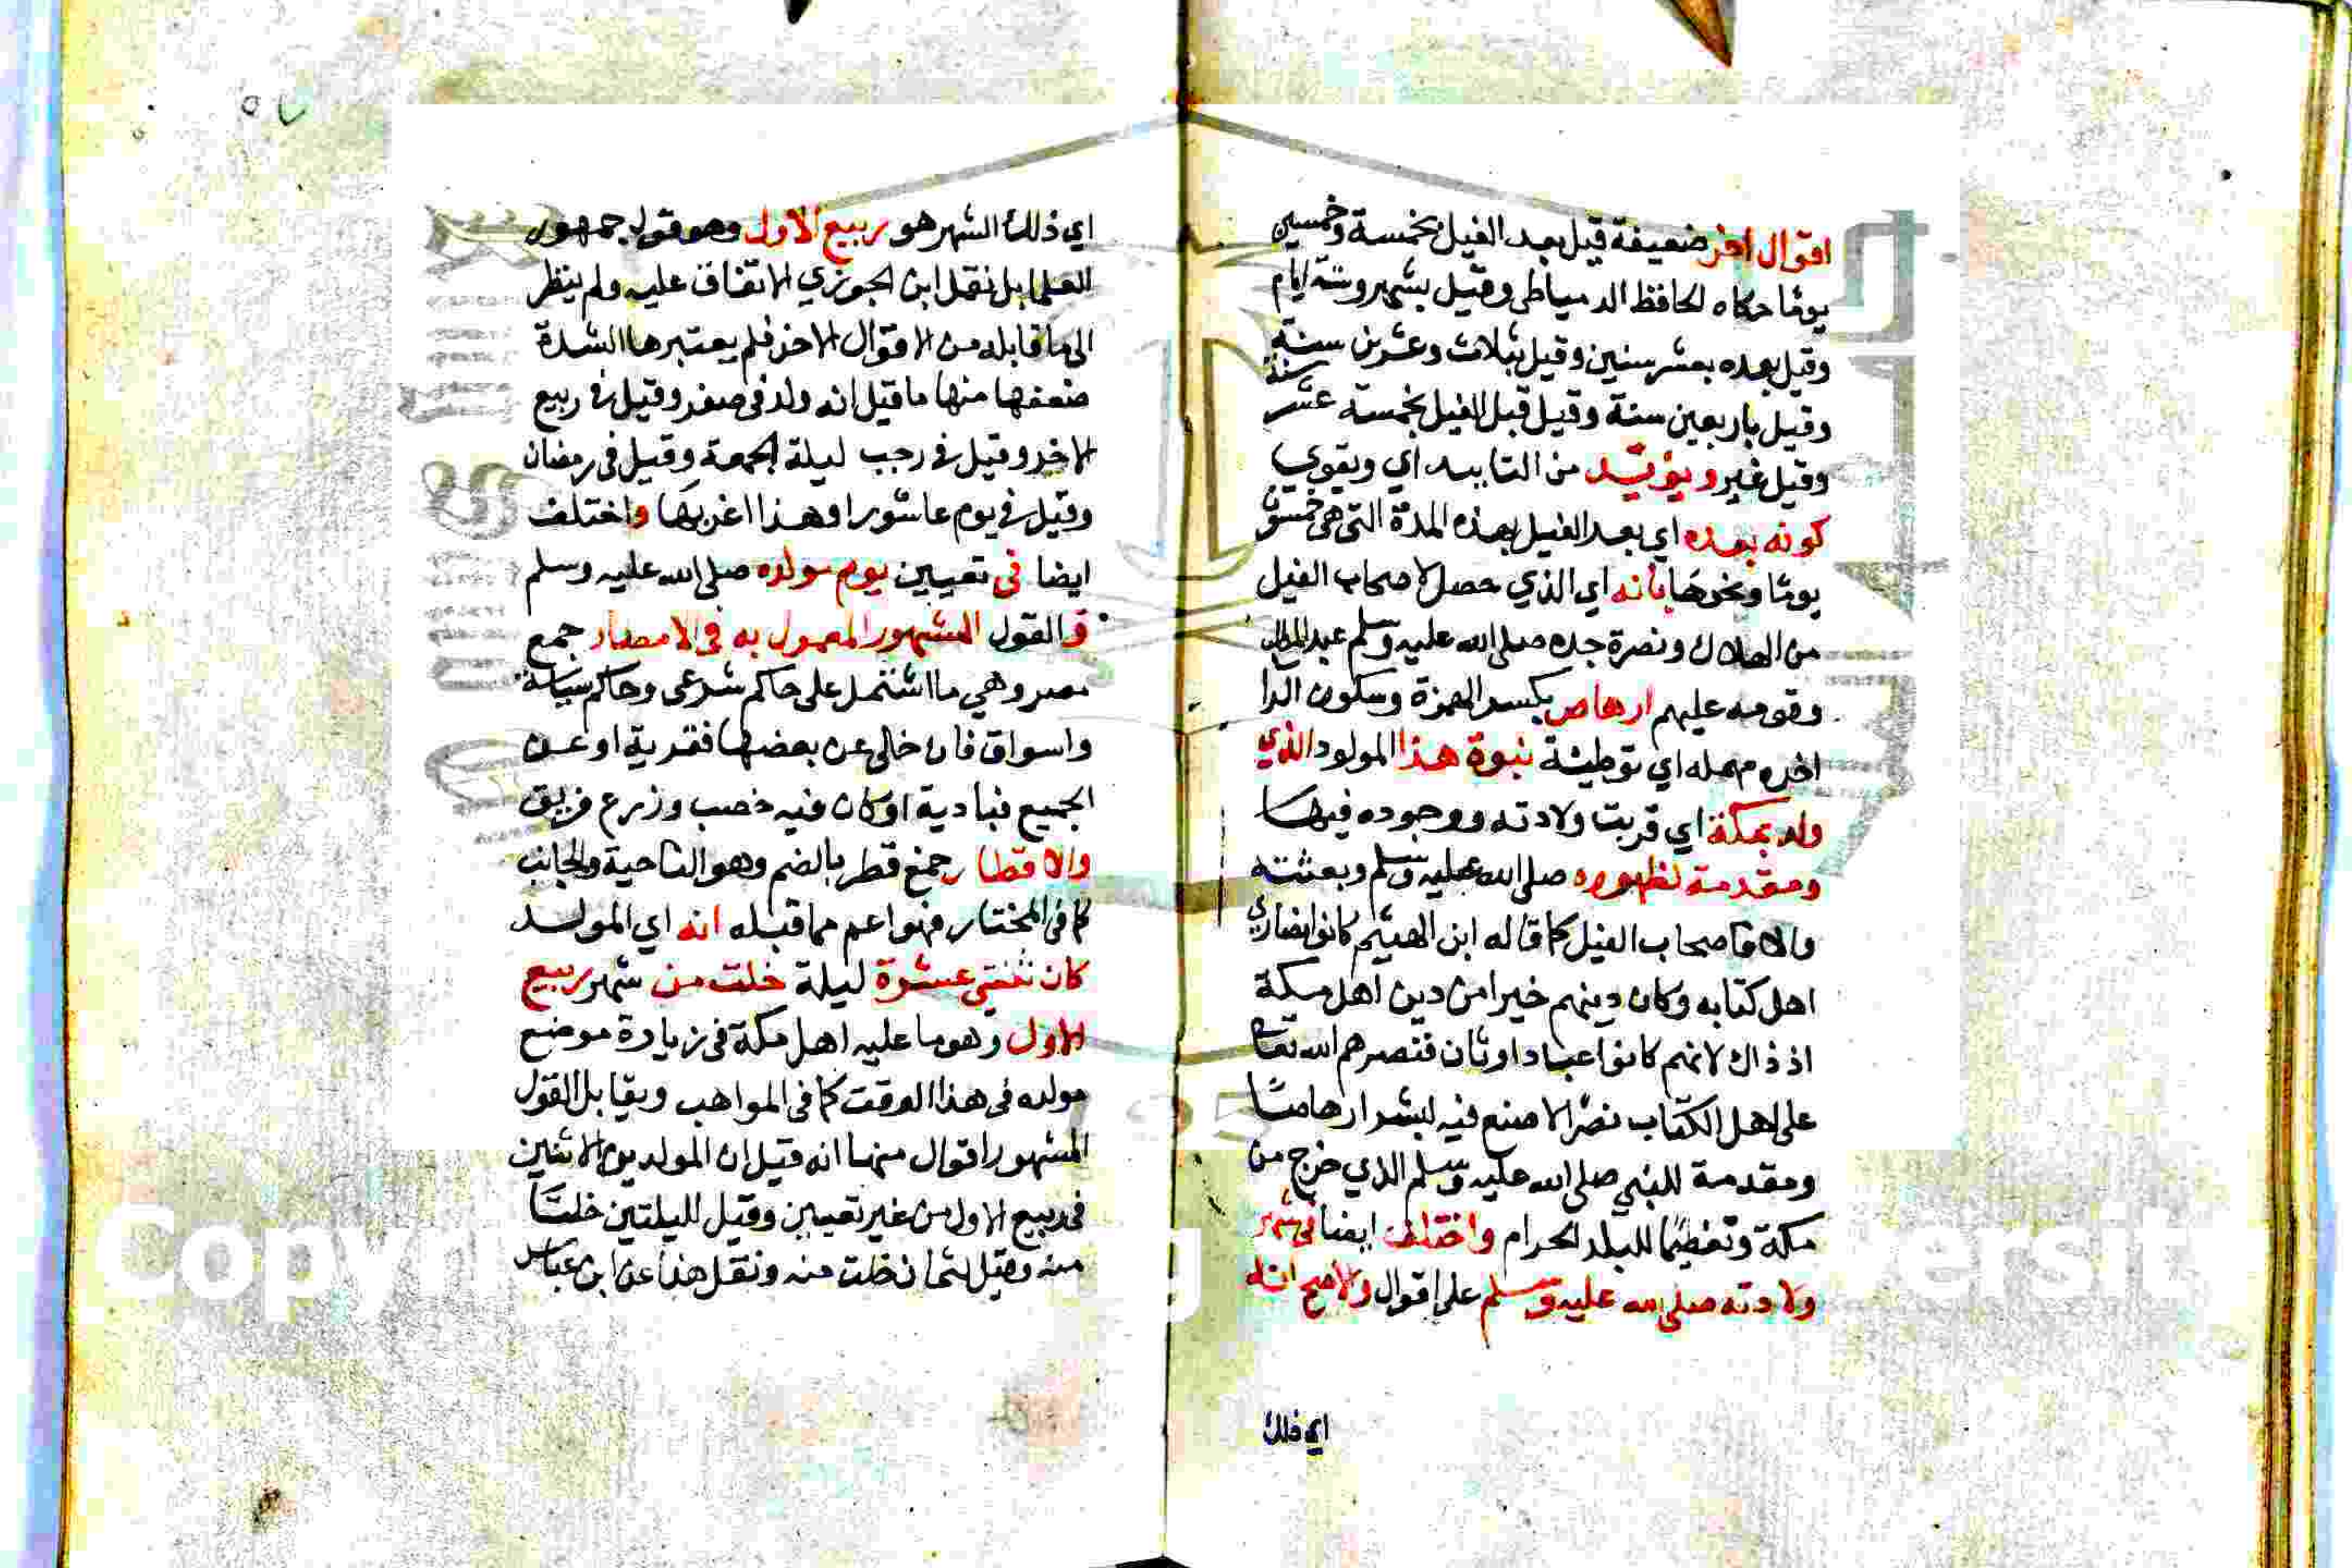 اقوال اخر ضعيفة قيل بعد الفيل بخمسة وخمسين
يوما حكاه الحافظ الدمياطي وقيل بشهر وستة ايام
وقيل بعده بعشر سنين وقيل بثلاث وعشرين سنة
وقيل باربعين سنة وقيل قبل الفيل بخمسة عشر سنة
وقيل غير ويؤيد من التاييد اي ويقوي
كونه بعده اي بعد الفيل بهذه المدة التي هي خمسون
يوما ونحوها بانه اي الذي حصل لاصحاب الفيل
من الهلاك ونصرة جده صلى الله عليه وسلم عبد المطلب
وقومه عليهم ارهاص بكسر الهمزة وسكون الرا
اخره مهمله اي توطئة نبوة هذا المولود الذي
ولد بمكة اي قربت ولادته ووجوده فيها
ومقدمة لظهوره صلى الله عليه وسلم وبعثته
والا فاصحاب الفيل كما قاله ابن الهيثم كانوا نصارى
اهل كتابه وكان دينهم خيرا من دين اهل مكة
اذ ذاك لانهم كانوا عباد اوثان فنصرهم الله تعالى
على اهل الكتاب نصرا لا صنع فيه لبشر ارهاصا
ومقدمة للنبي صلى الله عليه وسلم الذي خرج من
مكة وتعظيما للبلد الحرام واختلف ايضا في شهر
ولادته صلى الله عليه وسلم على اقوال والاصح انه
اي ذلك
٥٧
اي ذلك الشهر هو ربيع الاول وهو قول جمهور
العلما بل نقل ابن الجوزي الاتفاق عليه ولم ينظر
الى ما قابله من الاقوال الاخر فلم يعتبرها لشدة
ضعفها منها ما قيل انه ولد في صفر وقيل في ربيع
الاخر وقيل في رجب ليلة الجمعة وقيل في رمضان
وقيل في يوم عاشورا وهذا اغربها واختلف
ايضا في تعيين يوم مولده صلى الله عليه وسلم
فالقول المشهور المعمول به في الامصار جمع
مصر وهي ما اشتمل على حاكم شرعى وحاكم سياسة
واسواق فان خلى عن بعضها فقرية او عن
الجميع فبادية او كان فيه خصب وزرع فريق
والاقطار جمع قطر بالضم وهو الناحية والجانب
كما في المختار فهو اعم مما قبله انه اي المولد
كان ثنتي عشرة ليلة خلت من شهر ربيع
الاول وهو ما عليه اهل مكة في زيارة موضع
مولده في هذا الوقت كما في المواهب ويقابل القول
المشهور اقوال منها انه قيل ان المولد يوم الاثنين
في ربيع الاول من غير تعيين وقيل لليلتين خلتا
منه وقيل لثمان خلت منه ونقل هذا عن ابن عباس